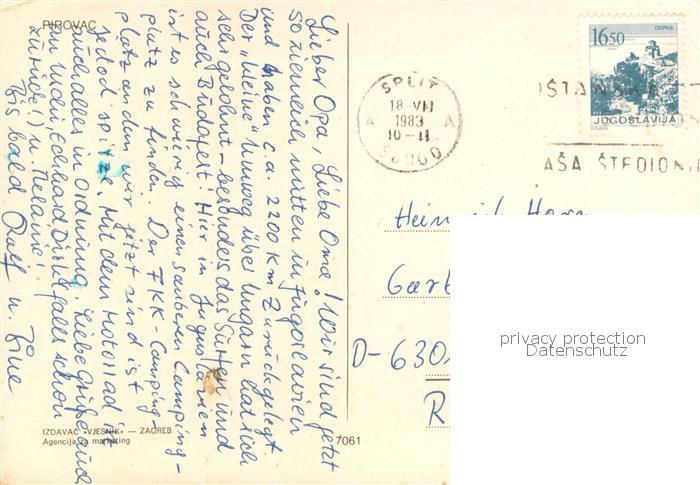 PIROVAC
Lieber Opa, Liebe Oma! Wir sind jetzt
so ziemlich mitten in Jugoslawien
und haben c.a. 2200 km zurückgelegt
Der "kleine" Umweg über Ungarn hat sich
sehr gelohnt - besonders das Surfen und
auch Budapest! Hier in Jugoslavien
ist es schwierig einen sauberen Camping-
platz zu finden. Der FKK-Camping-
platz an dem wir jetzt sind ist
jedoch spitze. Mit dem Motorrad ist
auch alles in Ordnung. Liebe Grüße auch
an Eckhard, Dirk (falls schon
zurück!) u. Melanie!
Bis bald Ralf u. Tine
IZDAVAČ »VJESNIK« — ZAGREB
Agencija za marketing
7061
SPLIT
18-VII
1983
10-11
A A
58000
16.50
JUGOSLAVIJA
AŠA ŠTEDION
Heinrich
Gart
D-630
R
privacy protection
Datenschutz